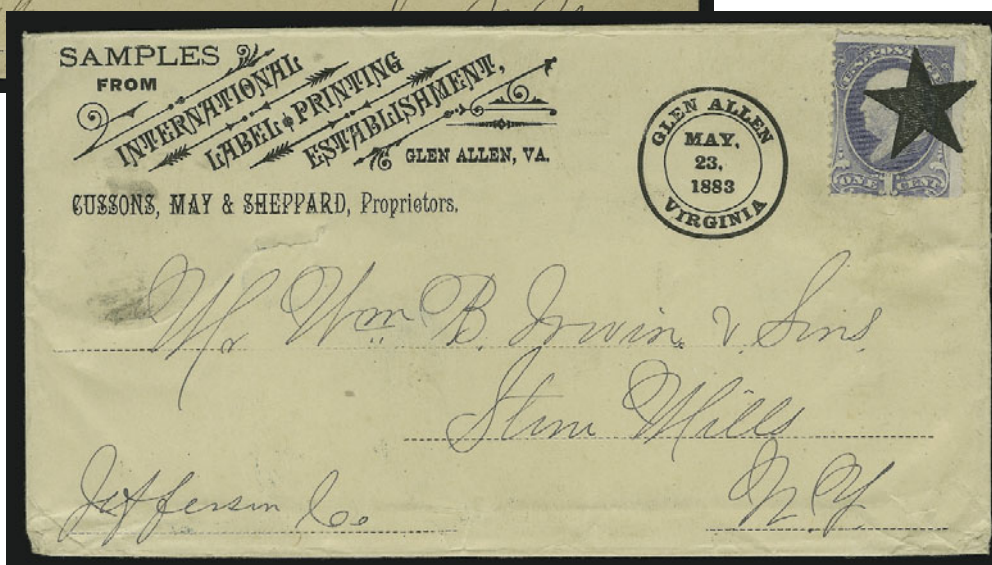 SAMPLES
FROM
INTERNATIONAL
LABEL & PRINTING
ESTABLISHMENT,
GLEN ALLEN, VA.
CUSSONS, MAY & SHEPPARD, Proprietors.
GLEN ALLEN
MAY,
23,
1883
VIRGINIA
U.S. POSTAGE
ONE 1 CENT
Mr Wm B. Irwin & Sons
Stone Mills
Jefferson Co
N. Y